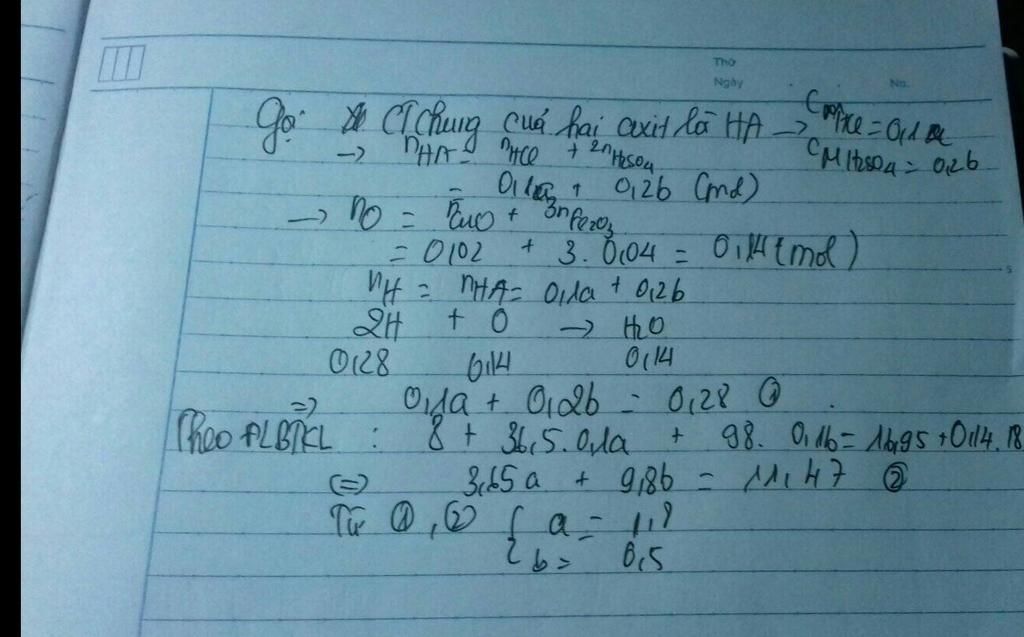 Thứ
Ngày No.
Gọi CT chung của hai axit là HA → C HCl = 0,1a
→ nHA = nHCl + 2nH2SO4 CM H2SO4 = 0,2b
= 0,1a + 0,2b (mol)
→ nO = nCuO + 3nFe2O3
= 0,02 + 3. 0,04 = 0,14 (mol)
nH = nHA = 0,1a + 0,2b
2H + O → H2O
0,28 0,14 0,14
=> 0,1a + 0,2b = 0,28 ①
Theo ĐLBTKL : 8 + 36,5.0,1a + 98. 0,1b = 16,95 + 0,14.18
(=) 3,65a + 9,8b = 11,47 ②
Từ ①, ② { a = 1,8
b = 0,5